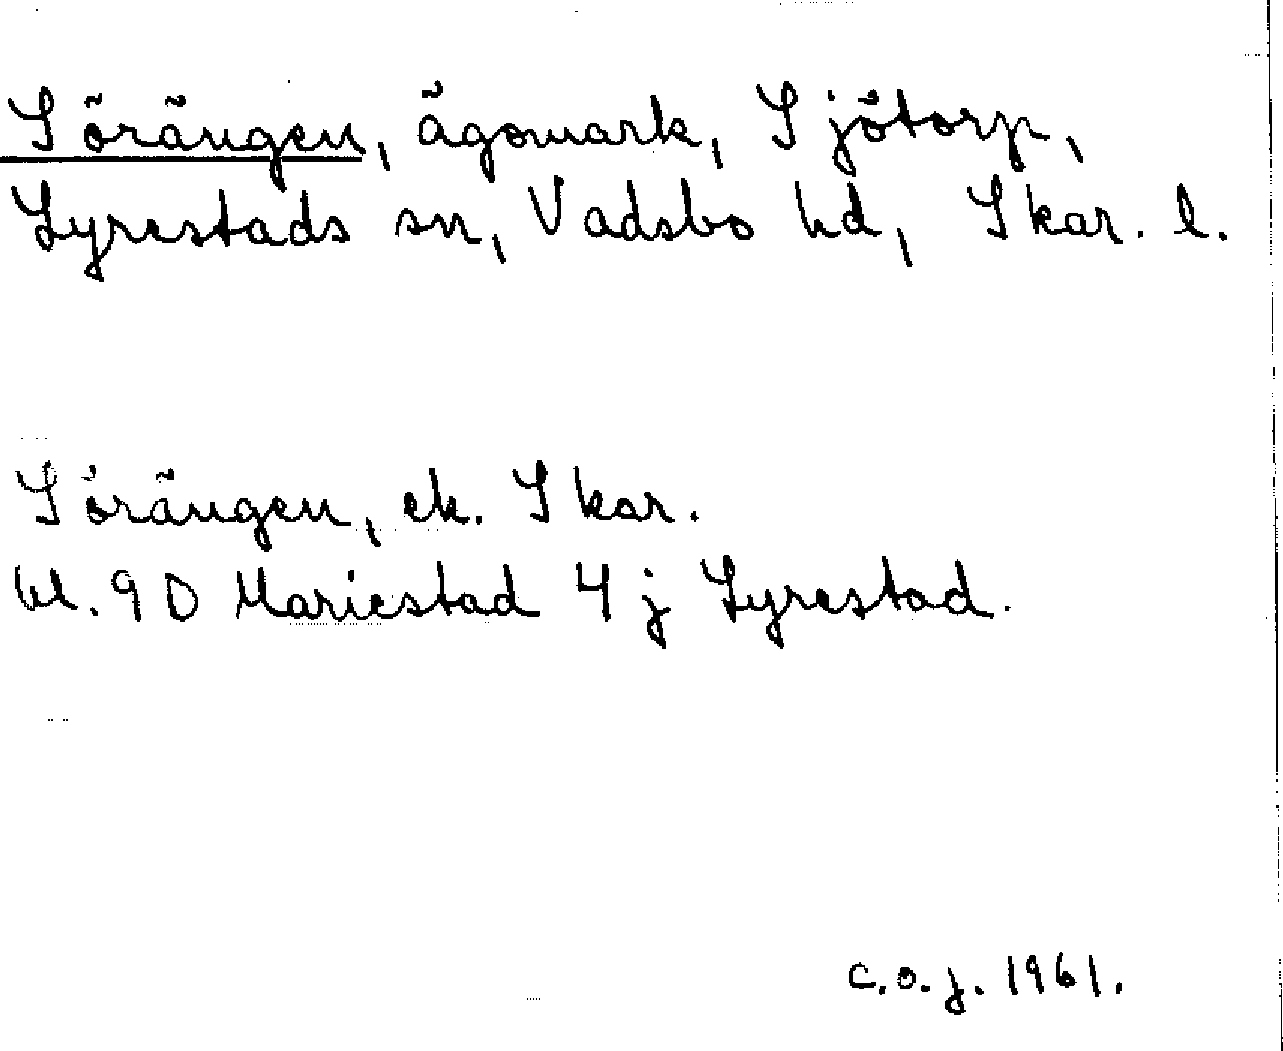 Sörängen, ägomark, Sjötorp,
Lyrestads sn, Vadsbo hd, Skar. l.
Sörängen, ek. Skar.
bl. 9 D Mariestad 4 j Lyrestad.
C.O.J. 1961.